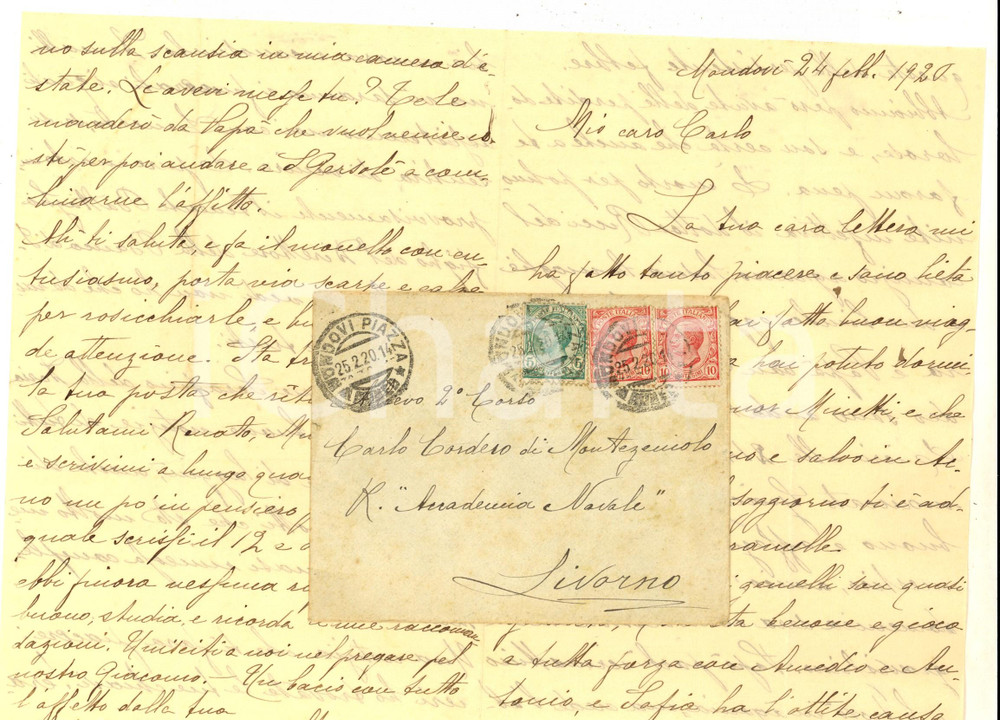 no sulla scansia in mia camera d'e-
state. Le avevi messe tu? Te le
manderò da Papà che vuol venire co-
stì, per poi andare a S Gersolè a com-
binarne l'affitto.
ti saluta, e fa il monello con en-
tusiasmo, porta via scarpe e calze
per rosicchiarle, e
de attenzione. Sta
la tua posta che
Salutami Renato,
e scrivimi a lungo
no un po' in pensiero
quale scrissi il 12 e
ebbi finora nessuna
buono, studia, e ricorda le mie raccoman
dazioni. Unisciti a noi nel pregare pel
nostro Giacomo. Un bacio con tutto
l'affetto dalla tua
Mondovì 24 febb. 1920
Mio caro Carlo
La tua cara lettera mi
ha fatto tanto piacere e sono lieta
hai fatto buon viag-
hai potuto dormi
Minetti, e che
no e salvo in
soggiorno ti è ad-
i gemelli son quasi
benone e gioca
a tutta forza con Amedeo e An-
tonio, e Sofia ha l'otite
MONDOVI PIAZZA
25.2.20.14
POSTE ITALIANE
5
10
10
25.2.20.14
Allievo 2° Corso
Carlo Cordero di Montezemolo
R. "Accademia Navale"
Livorno
iCharta